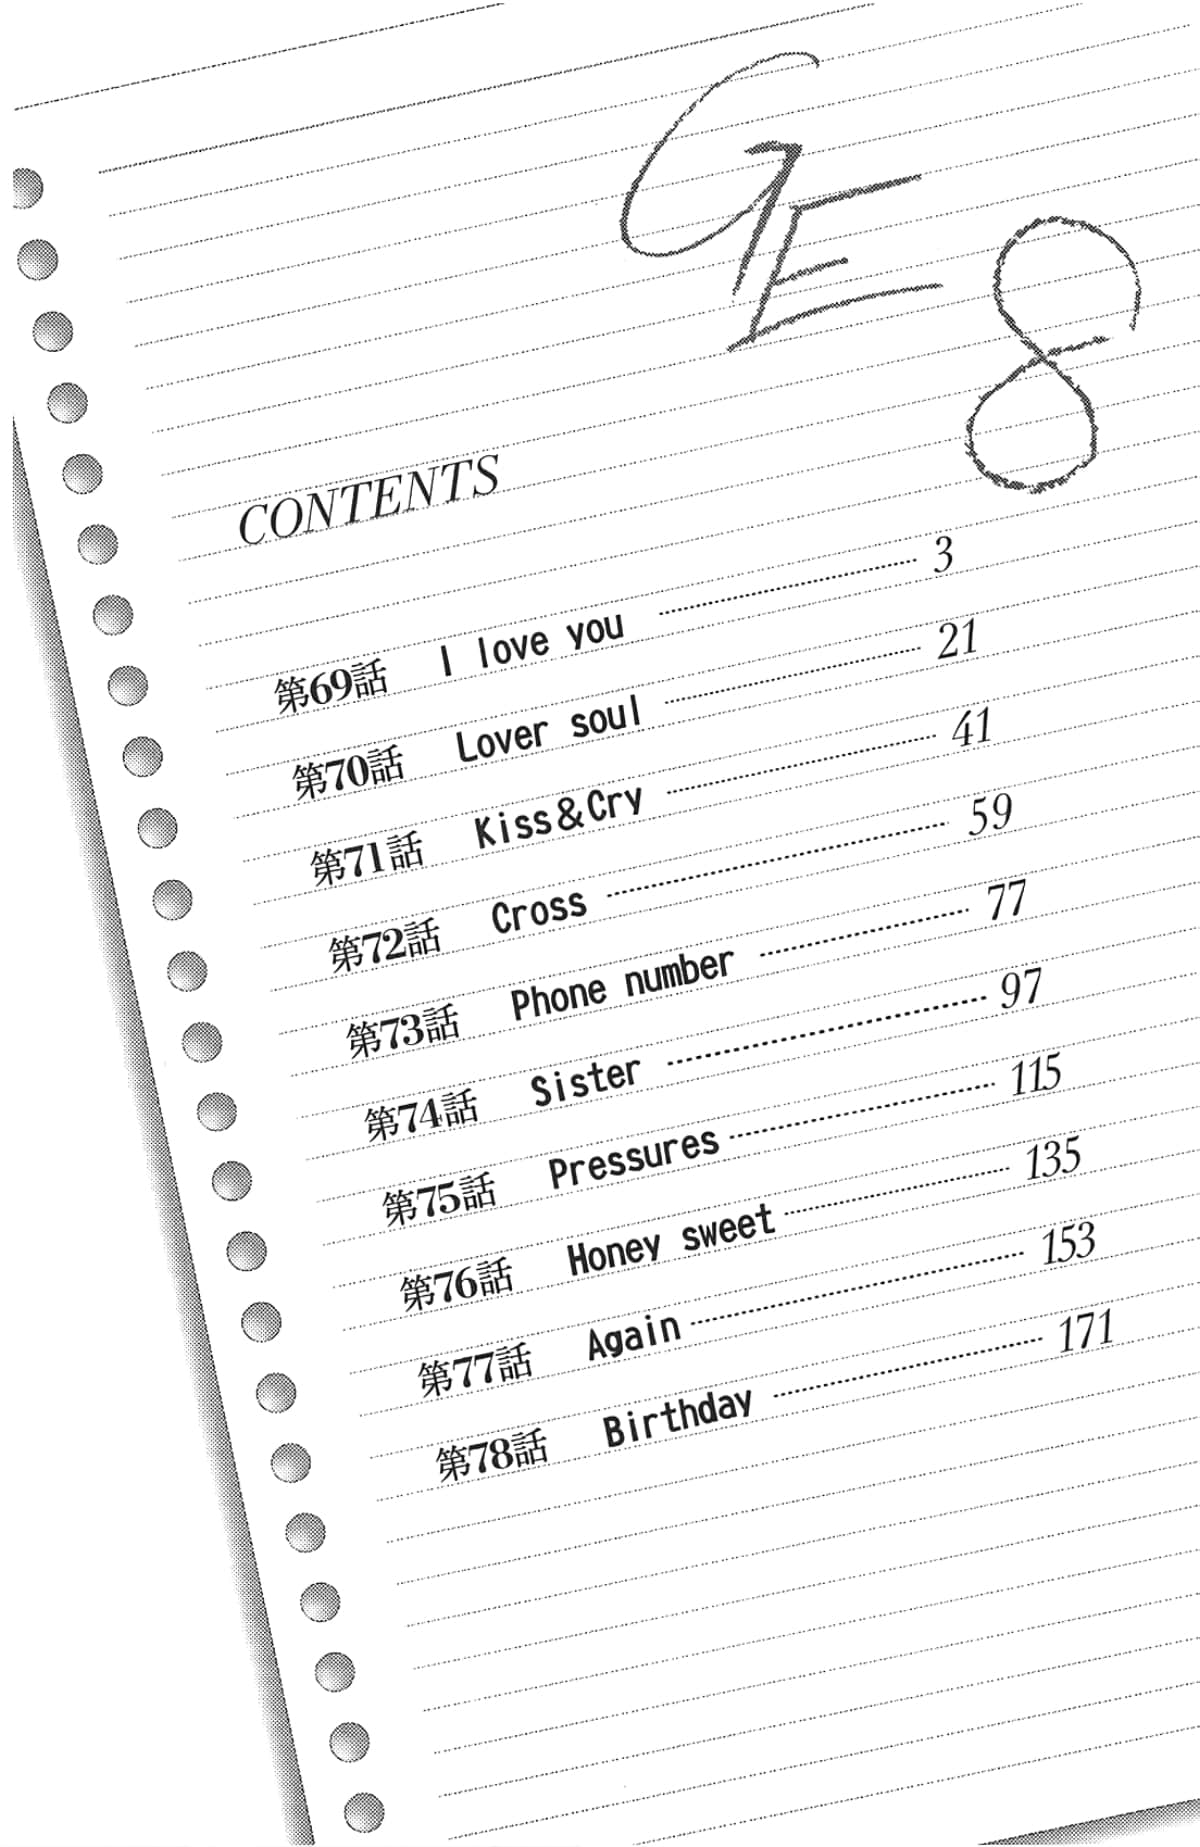 GE
8
CONTENTS
第69話 I love you 3
第70話 Lover soul 21
第71話 Kiss&Cry 41
第72話 Cross 59
第73話 Phone number 77
第74話 Sister 97
第75話 Pressures 115
第76話 Honey sweet 135
第77話 Again 153
第78話 Birthday 171